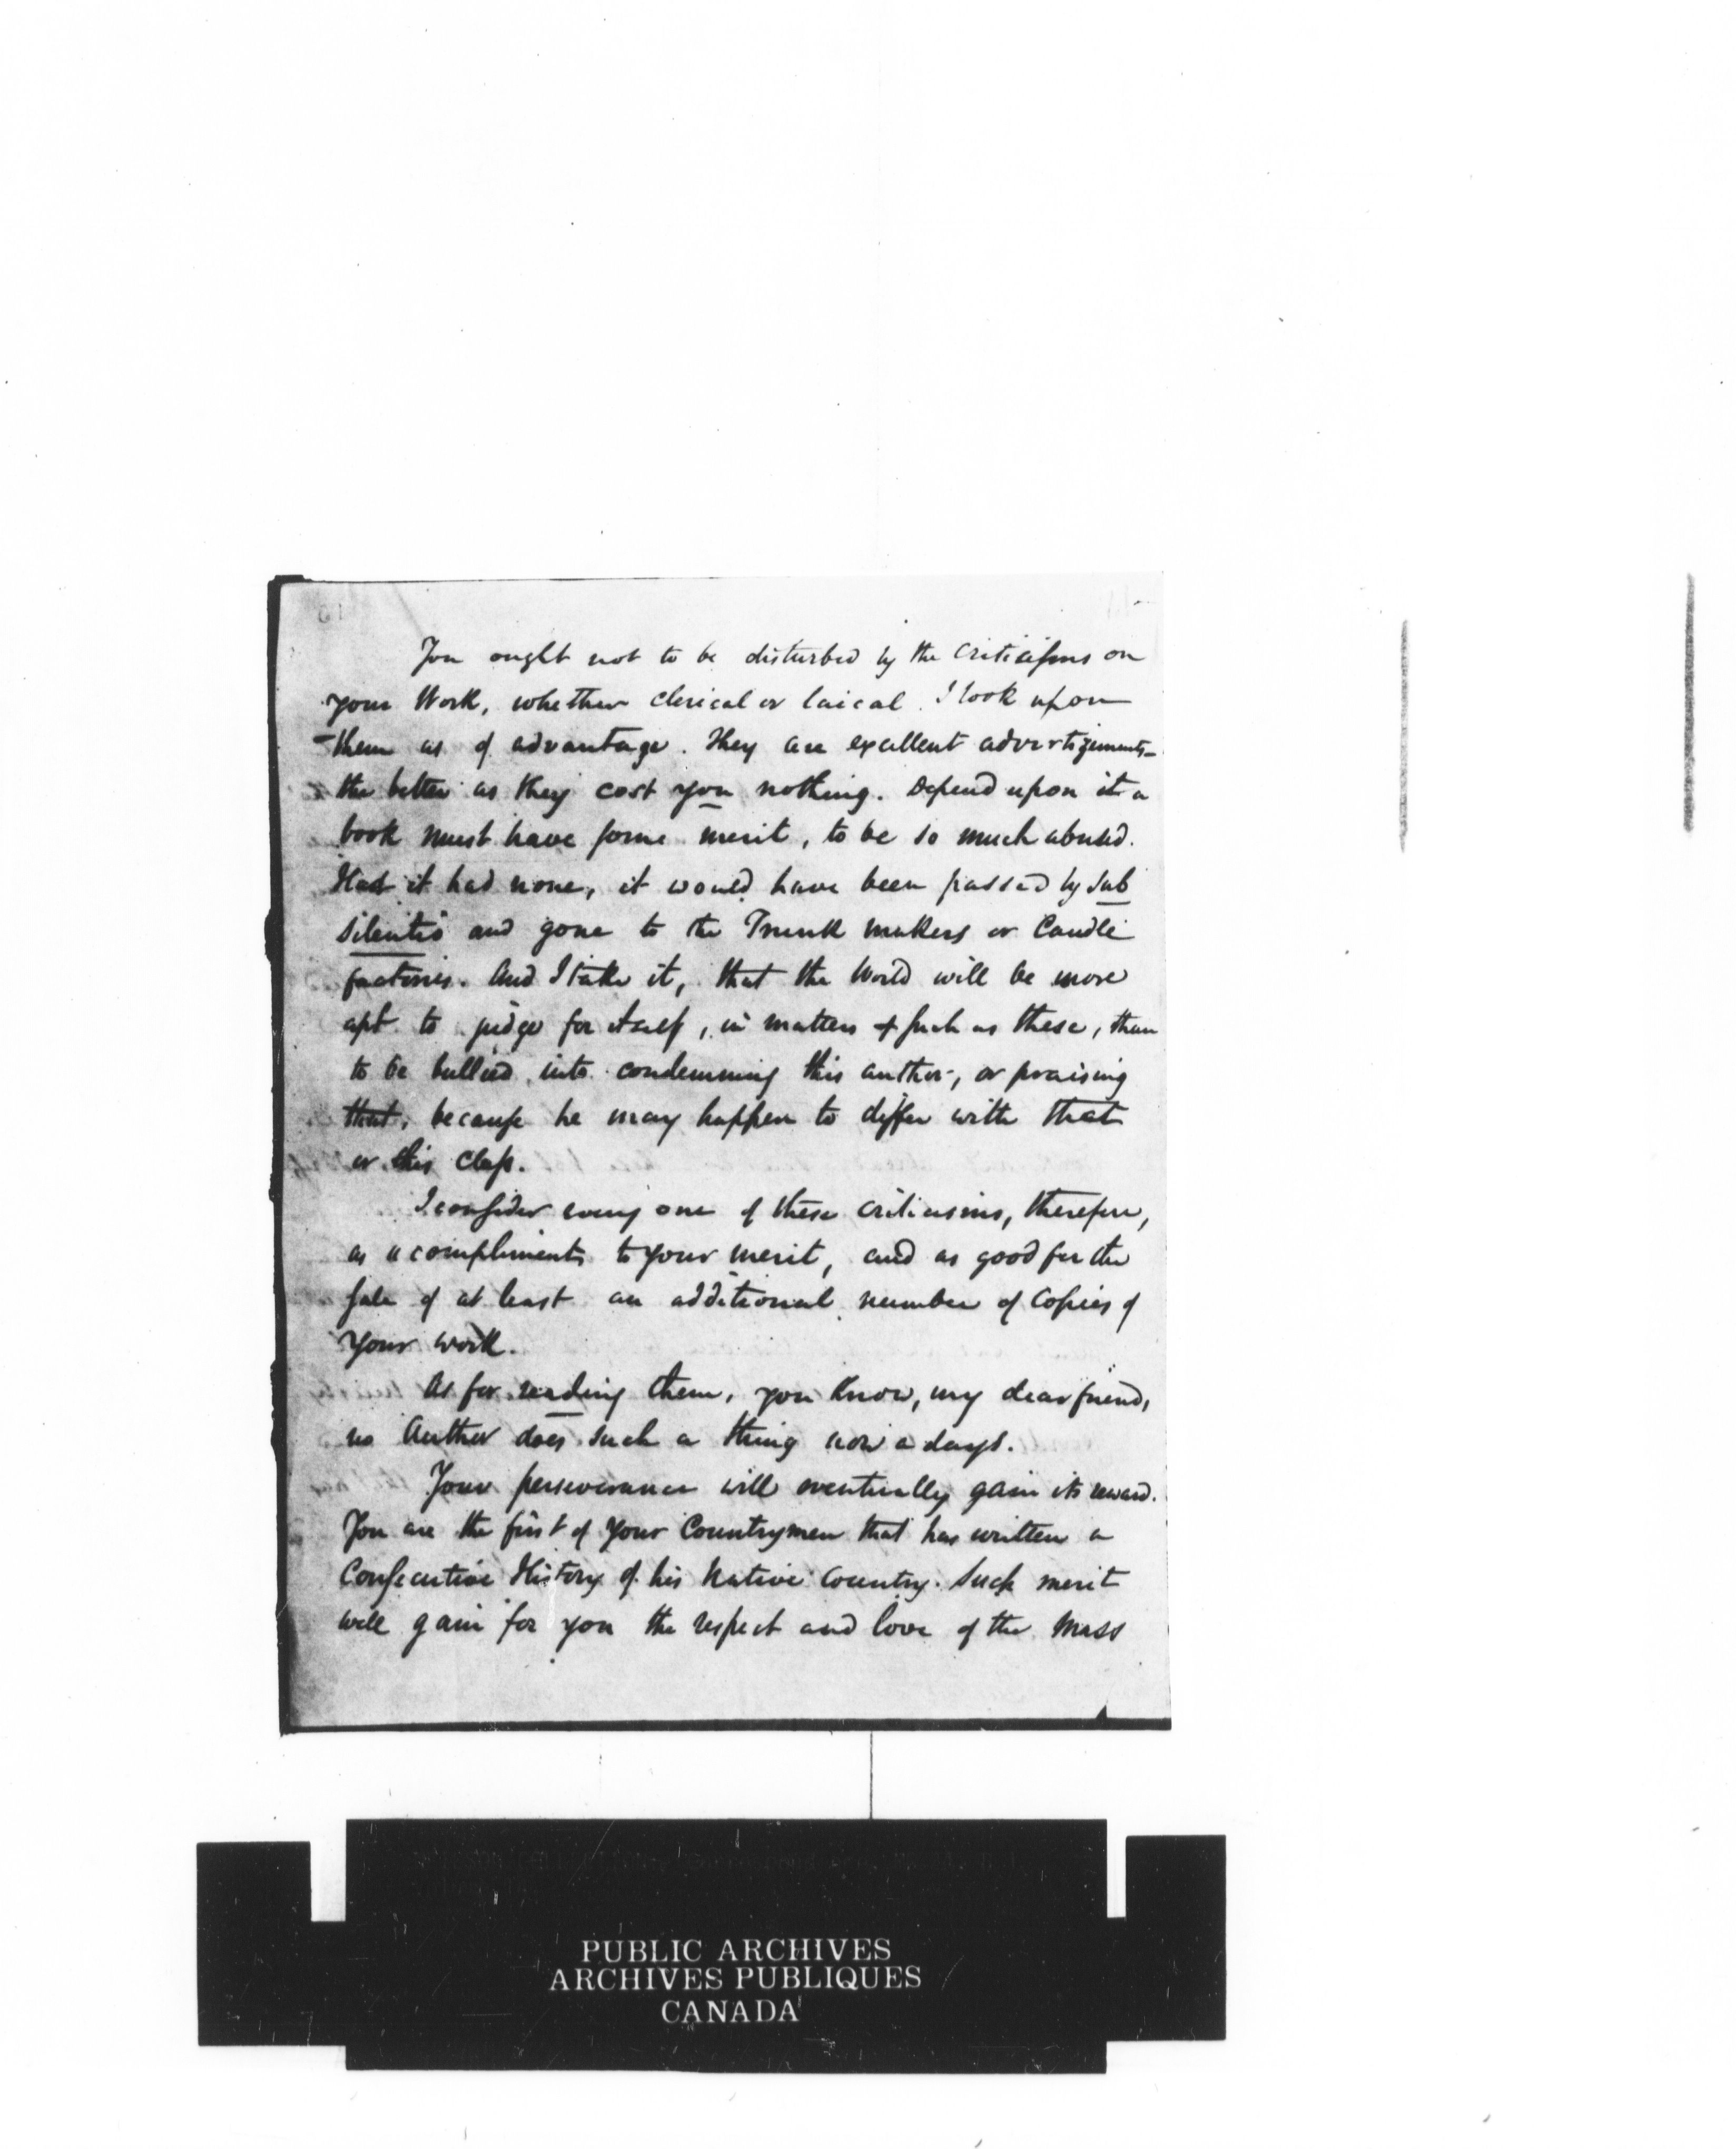 You ought not to be disturbed by the criticisms on
your Work, whether clerical or laical. I look upon
them as of advantage. They are excellent advertizements –
the better as they cost you nothing. Depend upon it a
book must have some merit, to be so much abused.
Had it had none, it would have been passed by sub
silentio and gone to the Trunk makers or Candle
factories. And I take it, that the World will be more
apt to judge for itself, in matters such as these, than
to be bullied into condemning this author, or praising
that, because he may happen to differ with that
or this class.
I consider every one of these criticisms, therefore,
as a compliment to your merit, and as good for the
sale of at least an additional number of Copies of
your work.
As for reading them, you know, my dear friend,
no Author does such a thing now a days.
Your perseverance will eventually gain its reward.
You are the first of your Countrymen that has written a
Consecutive History of his Native Country. Such merit
will gain for you the respect and love of the Mass
PUBLIC ARCHIVES
ARCHIVES PUBLIQUES
CANADA